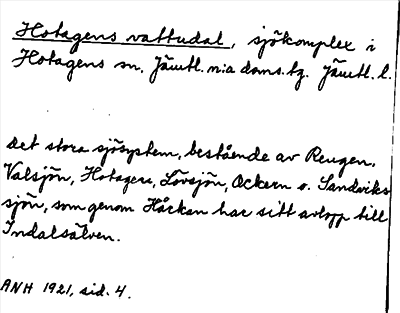 Hotagens vattudal, sjökomplex i
Hotagens sn. Jämtl. n:a doms. tg. Jämtl. l.
det stora sjösystem, bestående av Rengen,
Valsjön, Hotagen, Lövsjön, Ockern o. Sandviks-
sjön, som genom Hårkan har sitt avlopp till
Indalsälven.
ANH 1921, sid. 4.